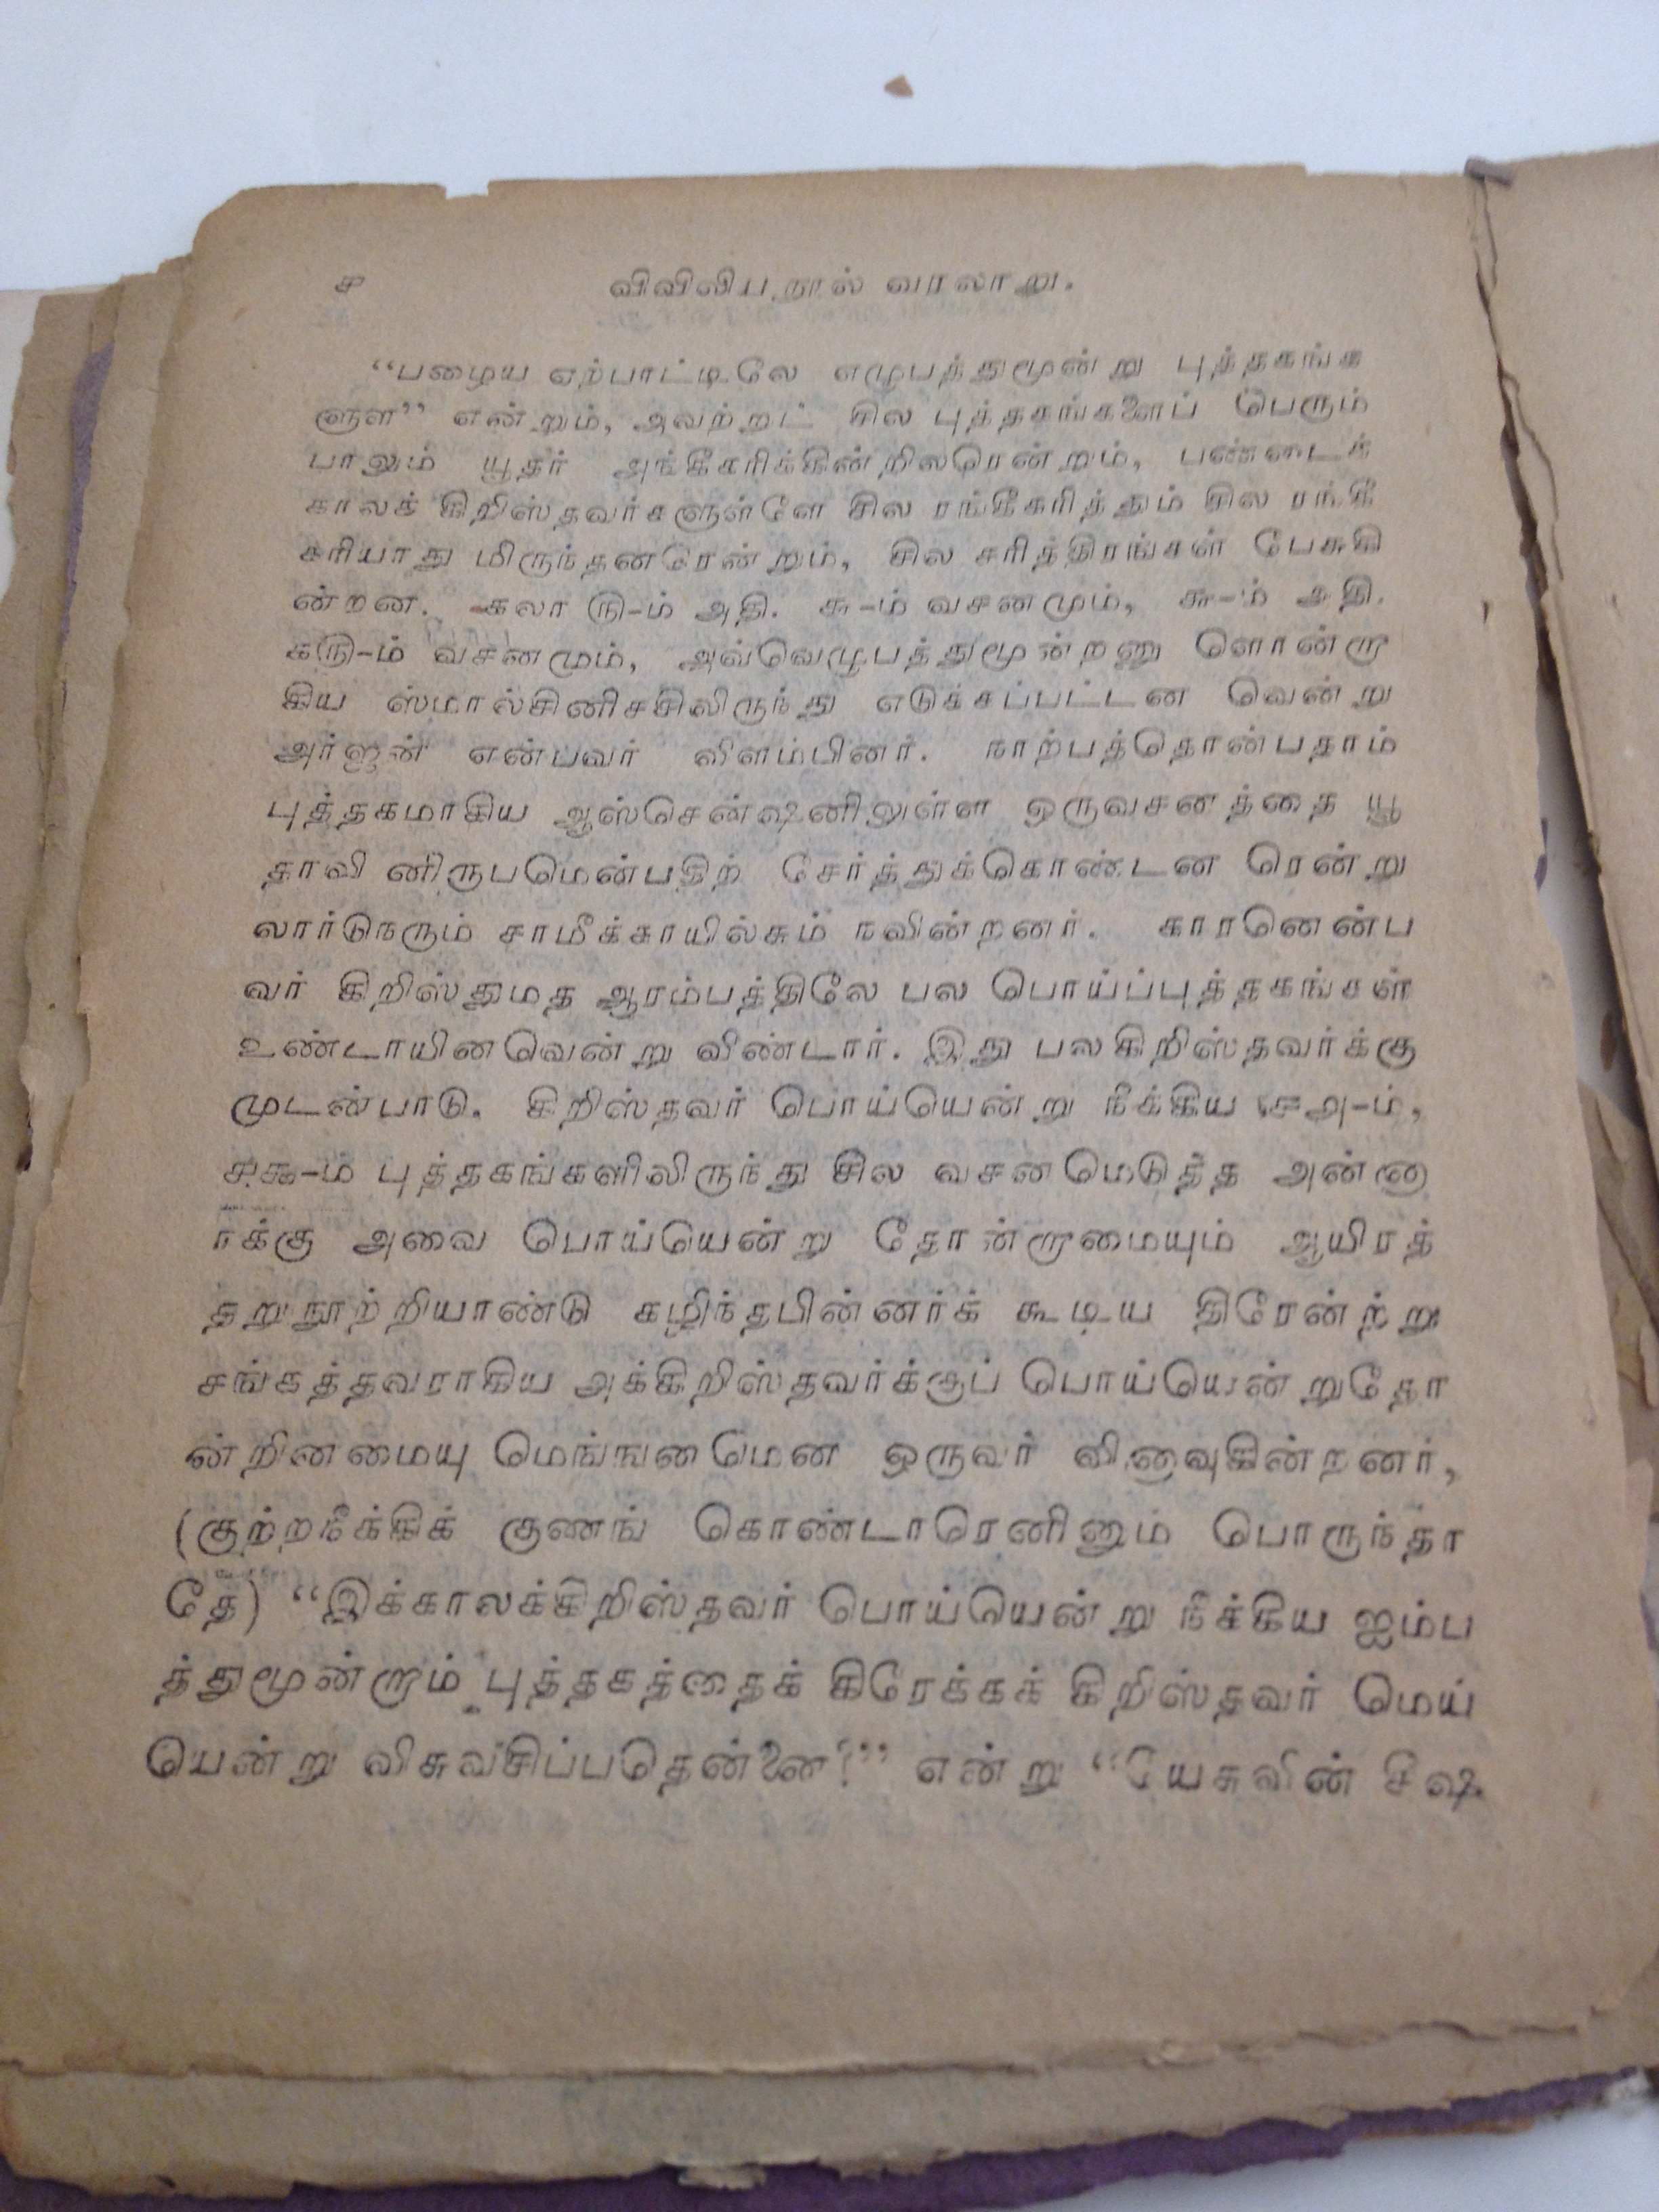 ௪ விவிலிய நூல் வரலாறு.
“பழைய ஏற்பாட்டிலே எழுபத்துமூன்று புத்தகங்க
ளுள” என்றும், அவற்றுட் சில புத்தகங்களைப் பெரும்
பாலும் யூதர் அங்கீகரிக்கின்றிலரென்றும், பண்டைக்
காலக் கிறிஸ்தவர்களுள்ளே சில ரங்கீகரித்தும் சில ரங்கீ
கரியாது மிருந்தனரென்றும், சில சரித்திரங்கள் பேசுகி
ன்றன. கலா ௫-ம் அதி. ௬-ம் வசனமும், ௬-ம் அதி.
௧௫-ம் வசனமும், அவ்வெழுபத்துமூன்றனு ளொன்றா
கிய ஸ்மால்சினிசசிலிருந்து எடுக்கப்பட்டன வென்று
அர்ஜன் என்பவர் விளம்பினர். நாற்பத்தொன்பதாம்
புத்தகமாகிய ஆஸ்சென்ஷனிலுள்ள ஒருவசனத்தை யூ
தாவி னிருபமென்பதிற் சேர்த்துக்கொண்டன ரென்று
லார்டுநரும் சாமீக்சாயில்சும் நவின்றனர். காரனென்ப
வர் கிறிஸ்துமத ஆரம்பத்திலே பல பொய்ப்புத்தகங்கள்
உண்டாயினவென்று விண்டார். இது பலகிறிஸ்தவர்க்கு
முடன்பாடு. கிறிஸ்தவர் பொய்யென்று நீக்கிய ௪௮-ம்,
௪௯-ம் புத்தகங்களிலிருந்து சில வசனமெடுத்த அன்னா
ர்க்கு அவை பொய்யென்று தோன்றாமையும் ஆயிரத்
தறுநூற்றியாண்டு கழிந்தபின்னர்க் கூடிய திரேன்ற்று
சங்கத்தவராகிய அக்கிறிஸ்தவர்க்குப் பொய்யென்றுதோ
ன்றினமையு மெங்ஙனமென ஒருவர் வினாவுகின்றனர்,
(குற்றநீக்கிக் குணங் கொண்டாரெனினும் பொருந்தா
தே) “இக்காலக்கிறிஸ்தவர் பொய்யென்று நீக்கிய ஐம்ப
த்துமூன்றாம் புத்தகத்தைக் கிரேக்கக் கிறிஸ்தவர் மெய்
யென்று விசுவசிப்பதென்னை?” என்று “யேசுவின் சீஷ